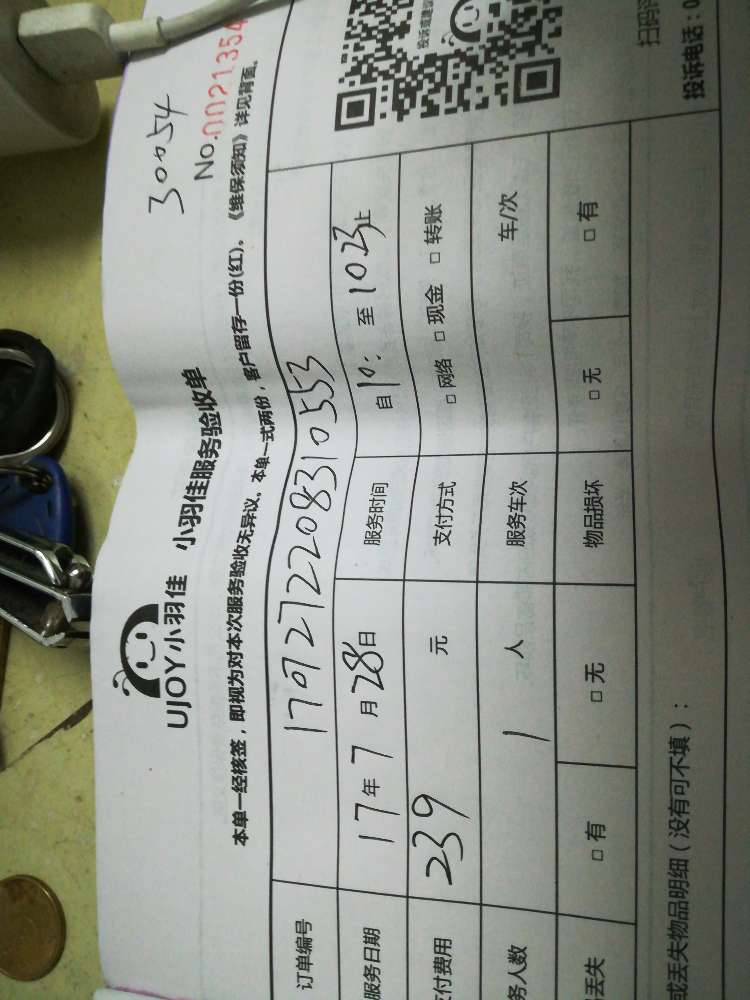 30054
No.0021354
UJOY小羽佳 小羽佳服务验收单
本单一经核签，即视为对本次服务验收无异议。本单一式两份，客户留存一份(红)。《维保须知》详见背面。
订单编号 1709272208310553
服务日期 17年7月28日 服务时间 自10: 至1023止
付费用 239元 支付方式 □网络 □现金 □转账
务人数 1人 服务车次 车/次
丢失 □有 □无 物品损坏 □无 □有
或丢失物品明细（没有可不填）：
扫码
投诉电话：0